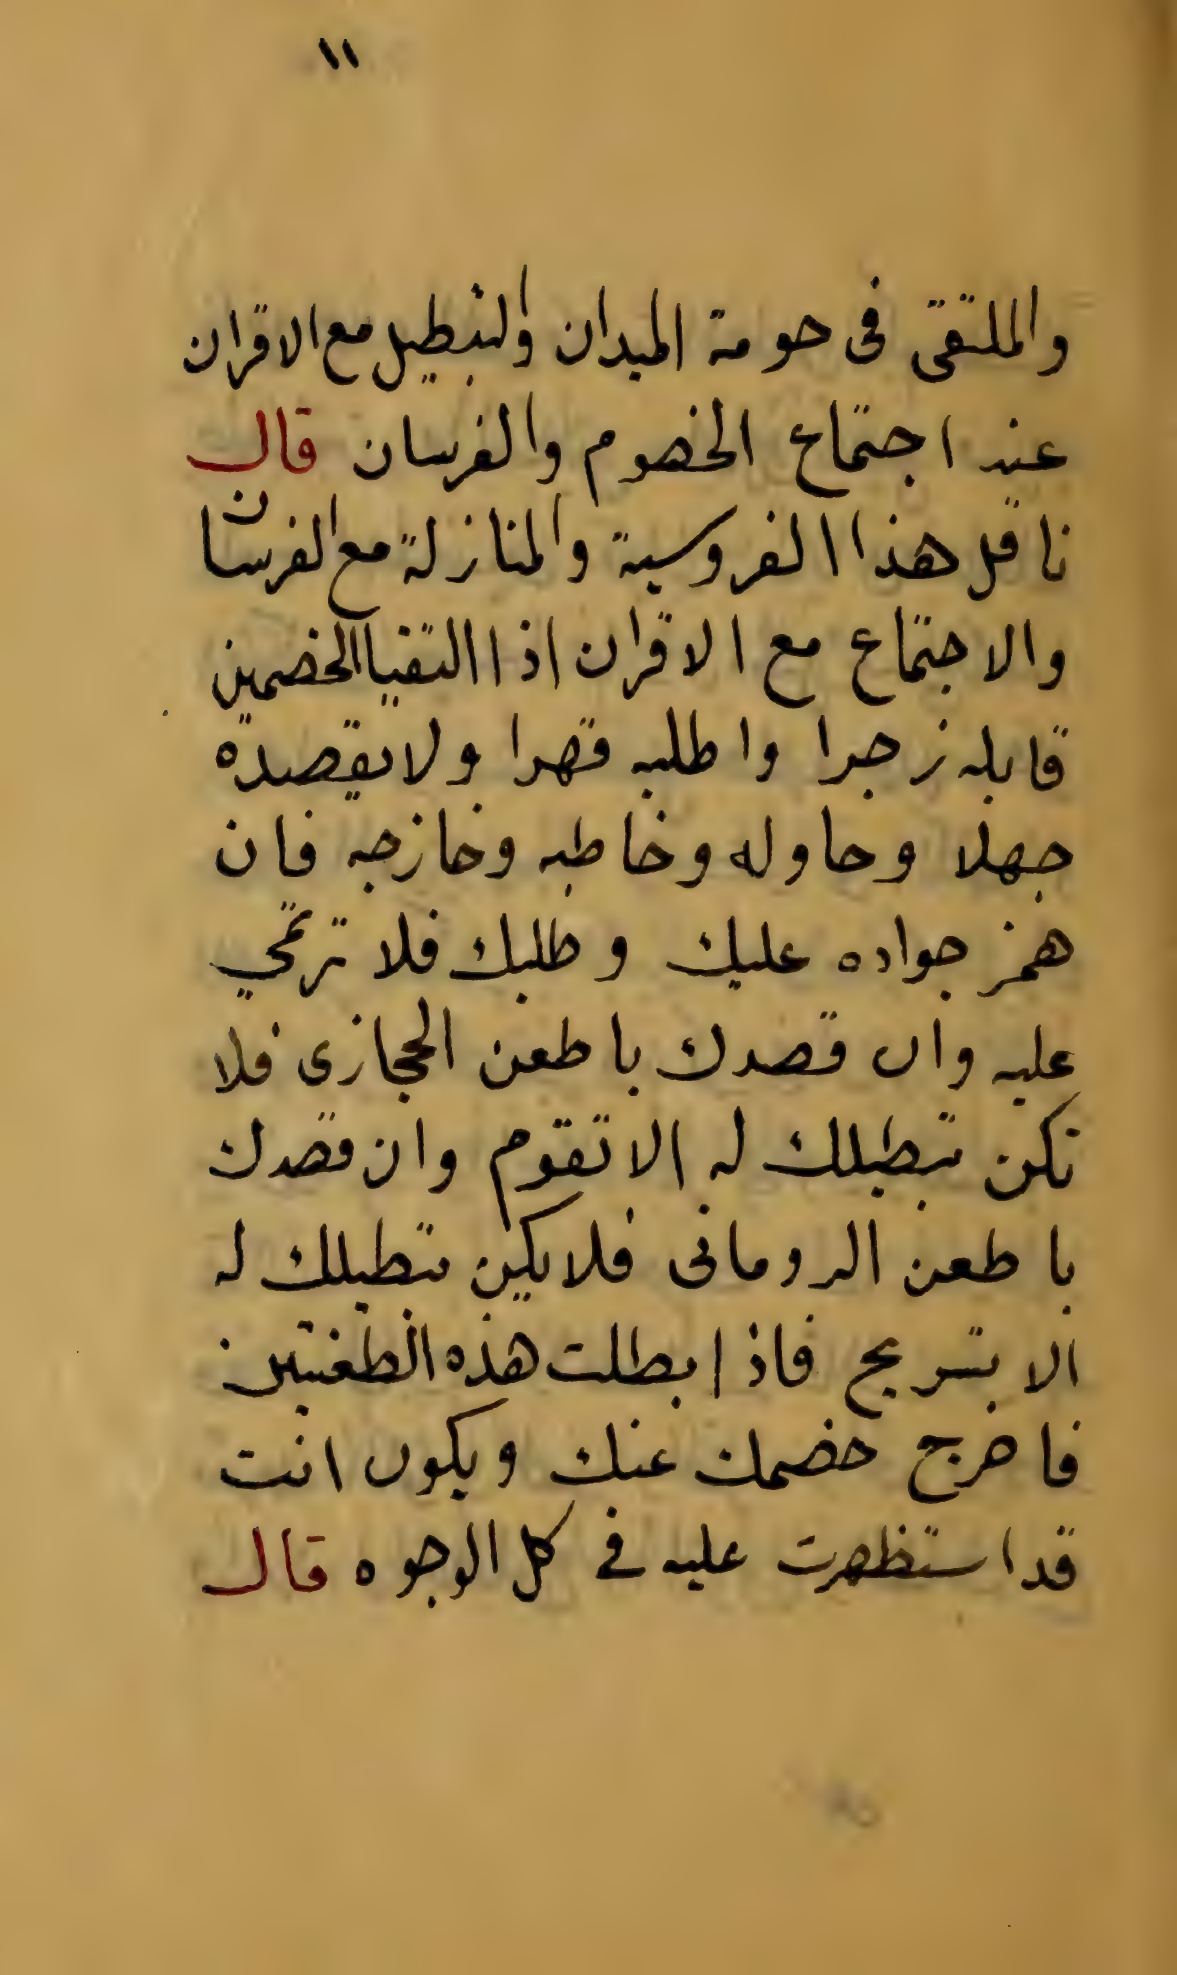 ١١
والملتقى فى حومة الميدان والتبطيل مع الاقران
عند اجتماع الخصوم والفرسان قال
ناقل هذا الفروسية والمنازلة مع الفرسان
والاجتماع مع الاقران اذا التقيا الخصمين
قابله زجرا واطلبه قهرا ولا تقصده
جهلا وحاوله وخاطبه وخازجه فان
همز جواده عليك وطلبك فلا ترتمي
عليه وان قصدك باطعن الحجازى فلا
تكن تبطيلك له الا تقوم وان قصدك
باطعن الرومانى فلا يكن تبطيلك له
الا بتسريح فاذا بطلت هذه الطعنتين
فاخرج خصمك عنك ويكون انت
قد استظهرت عليه فى كل الوجوه قال